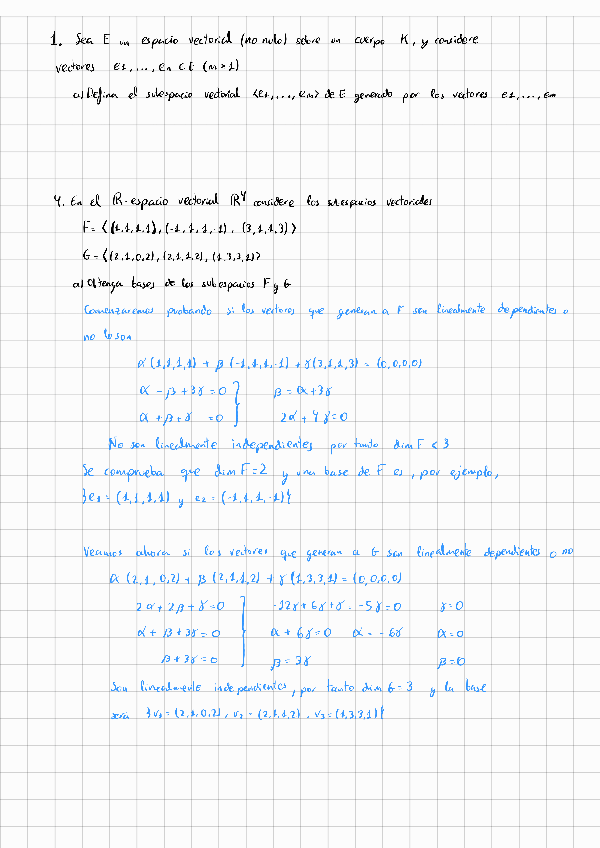 1. Sea E un espacio vectorial (no nulo) sobre un cuerpo K, y considere
vectores e1,...,en ⊂ E (m>1)
a) Defina el subespacio vectorial <e1,...,em> de E generado por los vectores e1,...,em
4. En el ℝ-espacio vectorial ℝ⁴ considere los subespacios vectoriales
F= <(1,1,1,1), (-1,1,1,-1), (3,1,1,3)>
G= <(2,1,0,2), (2,1,1,2), (1,3,3,1)>
a) Obtenga bases de los subespacios F y G
Comenzaremos probando si los vectores que generan a F son linealmente dependientes o
no lo son
α(1,1,1,1) + β(-1,1,1,-1) + γ(3,1,1,3) = (0,0,0,0)
α - β + 3γ = 0 } β = α + 3γ
α + β + γ = 0 } 2α + 4γ = 0
No son linealmente independientes por tanto dim F < 3
Se comprueba que dim F = 2 y una base de F es, por ejemplo,
}e1 = (1,1,1,1) y e2 = (-1,1,1,-1){
Veamos ahora si los vectores que generan a G son linealmente dependientes o no
α(2,1,0,2) + β(2,1,1,2) + γ(1,3,3,1) = (0,0,0,0)
2α + 2β + γ = 0 } -12γ + 6γ + γ = -5γ = 0 γ = 0
α + β + 3γ = 0 α + 6γ = 0 α = -6γ α = 0
β + 3γ = 0 β = 3γ β = 0
Son linealmente independientes, por tanto dim G = 3 y la base
será }v1 = (2,1,0,2), v2 = (2,1,1,2), v3 = (1,3,3,1){